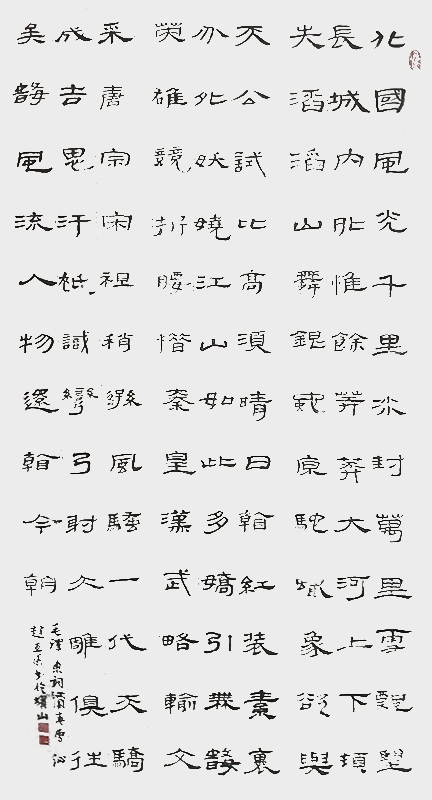 北國風光千里冰封萬里雪飄望
長城內外惟餘莽莽大河上下頓
失滔滔山舞銀蛇原馳蠟象欲與
天公試比高須晴日看紅裝素裹
分外妖嬈江山如此多嬌引無數
英雄競折腰惜秦皇漢武略輸文
采唐宗宋祖稍遜風騷一代天驕
成吉思汗祇識彎弓射大雕俱往
矣數風流人物還看今朝
毛澤東詞園春雪 沁
趙亞書於山